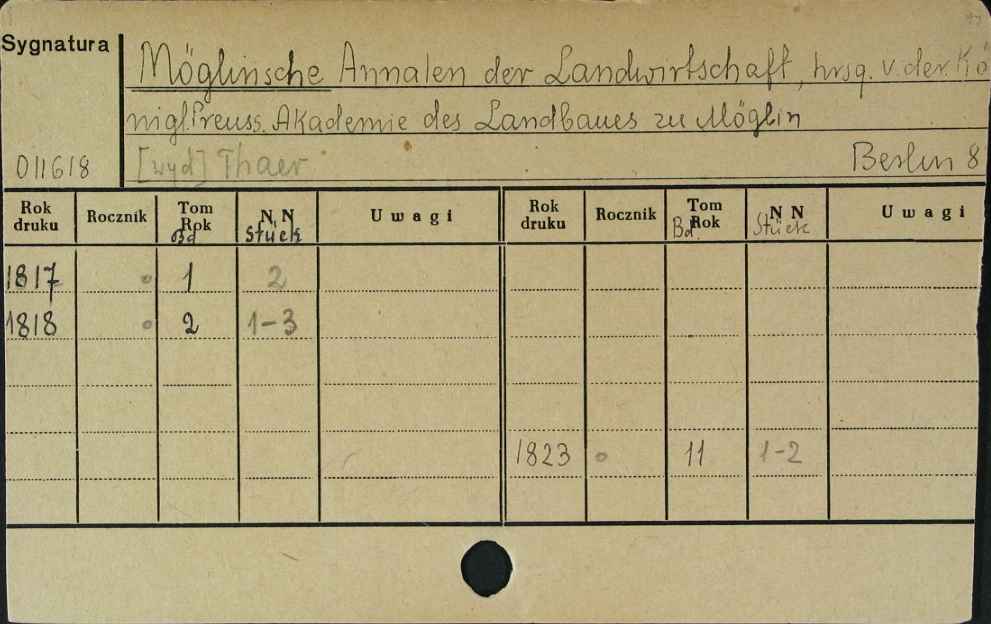 Sygnatura
Möglinsche Annalen der Landwirtschaft, hrsg. v. der Kö
nigl. Preuss. Akademie des Landbaues zu Möglin
011618 [wyd] Thaer Berlin 8
Rok druku Rocznik Tom Rok Bd NN Stück Uwagi Rok druku Rocznik Tom Rok Bd. NN Stück Uwagi
1817 1 2
1818 2 1-3
1823 11 1-2